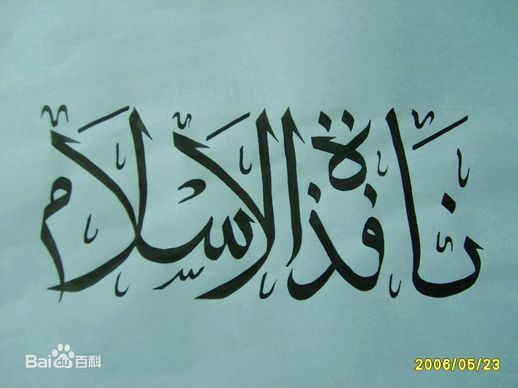 نافذة الإسلام
Bai百科
2006/05/23